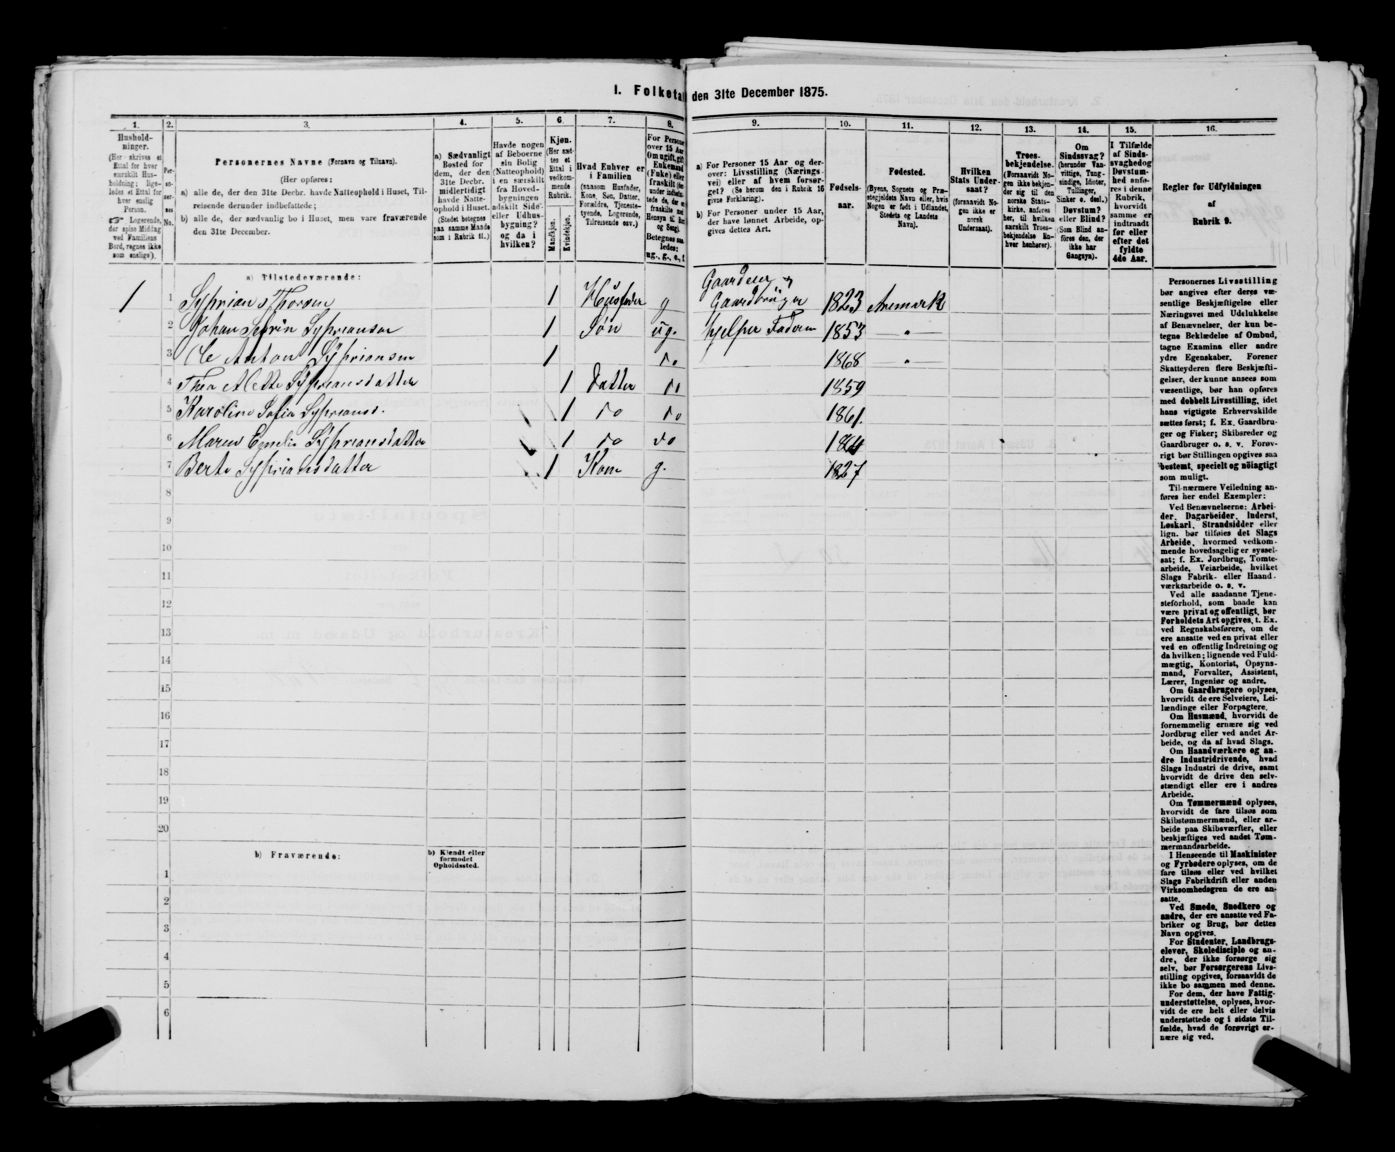 I. Folketal den 31te December 1875.
1. 2. 3. 4. 5. 6. 7. 8. 9. 10. 11. 12. 13. 14. 15. 16.
Hushold-
ninger.
(Her skrives et
Ettal for hver
særskilt Hus-
holdning; lige-
ledes et Ettal for
hver enslig
Person.
☞ Logerende,
der spise Middag
ved Familiens
Bord, regnes ikke
som enslige).
Per-
so-
ner-
nes
No.
Personernes Navne (Fornavn og Tilnavn).
(Her opføres:
a) alle de, der den 31te Decbr. havde Natteophold i Huset, Til-
reisende derunder indbefattede;
b) alle de, der sædvanlig bo i Huset, men vare fraværende
den 31te December.
a) Sædvanligt
Bosted for
dem, der den
31te Decbr.
midlertidigt
havde Natte-
ophold i Huset.
(Stedet betegnes
paa samme Maade
som i Rubrik 11.)
Havde nogen
af Beboerne
sin Bolig
(Natteophold)
i en særskilt
fra Hoved-
bygningen
adskilt Side-
eller Udhus-
bygning?
og da i
hvilken?
Kjøn.
(Her sæt-
tes et
Ettal i
vedkom-
mende
Rubrik.
Mandkjøn.
Kvindekjøn.
Hvad Enhver er
i Familien
(saasom Husfader,
Kone, Søn, Datter,
Forældre, Tjeneste-
tyende, Logerende,
Tilreisende osv.).
For Personer
over 15 Aar
Om ugift, gift,
Enkemand
(Enke) eller
fraskilt
Betegnes saa-
ledes:
ug., g., e., f.
a) For Personer 15 Aar og der-
over: Livsstilling (Nærings-
vei) eller af hvem forsør-
get? (Se herom den i Rubrik 16
givne Forklaring).
b) For Personer under 15 Aar,
der have lønnet Arbeide, op-
gives dettes Art.
Fødsels-
aar.
Fødested.
(Byens, Sognets og Præ-
stegjeldets Navn eller, hvis
Nogen er født i Udlandet,
Stedets og Landets
Navn).
Hvilken
Stats Under-
saat?
(forsaavidt No-
gen ikke er
norsk
Undersaat).
Troes-
bekjendelse.
(Forsaavidt No-
gen ikke bekjen-
der sig til den
norske Stats-
kirke, anføres
her, til hvilken
særskilt Troes-
bekjendelse En-
hver henhører).
Om
Sindssvag?
(herunder Van-
vittige, Tung-
sindige, Idioter,
Tullinger,
Sinker o. desl.)
Døvstum?
eller Blind?
(Som Blind an-
føres den, der
ikke har
Gangsyn).
I Tilfælde
af Sinds-
svaghed og
Døvstum-
hed anfø-
res i denne
Rubrik,
hvorvidt
samme er
indtraadt
før eller
efter det
fyldte
4de Aar.
Regler for Udfyldningen
af
Rubrik 9.
a) Tilstedeværende:
1 1 Syprian Thorsen 1 Husfader g Gaardeier & Gaardbruger 1823 Aremark
2 Johan Syprianson 1 Søn ug. Hjelper Faderen 1853 "
3 Ole Anton Syprianson 1 do 1868 "
4 Thea Mette Sypriansdatter 1 Datter do 1859
5 Karoline Sofia Sypriansd. 1 do do 1861.
6 Maren Emelie Sypriansdatter 1 do do
7 Berte Sypriansdatter 1 Kone g. 1827
8
9
10
11
12
13
14
15
16
17
18
19
20
b) Fraværende:
b) Kjendt eller
formodet
Opholdssted.
1
2
3
4
5
6
Personernes Livsstilling
bør angives efter deres væ-
sentlige Beskjæftigelse eller
Næringsvei med Udelukkelse
af Benævnelser, der kun be-
tegne Beklædelse af Ombud,
tagne Examina eller andre
ydre Egenskaber. Forener
Skatteyderen flere Beskjæfti-
gelser, der kunne ansees som
væsentlige, bør han opføres
med dobbelt Livsstilling, idet
hans vigtigste Erhvervskilde
sættes først; f. Ex. Gaardbru-
ger og Fisker; Skibsreder og
Gaardbruger o. s. v. Forøv-
rigt bør Stillingen opgives saa
bestemt, specielt og nøiagtigt
som muligt.
Til nærmere Veiledning an-
føres her endel Exempler:
Ved Benævnelserne: Arbei-
der, Dagarbeider, Inderst,
Løskarl, Strandsidder eller
lign. bør tilføies det Slags
Arbeide, hvormed vedkom-
mende hovedsagelig er syssel-
sat; f. Ex. Jordbrug, Tomte-
arbeide, Veiarbeide, hvilket
Slags Fabrik- eller Haand-
værksarbeide o. s. v.
Ved alle saadanne Tjene-
steforhold, som baade kan
være privat og offentligt, bør
Forholdets Art opgives, t. Ex.
ved Regnskabsførere, om de
ere ansatte ved en privat eller
ved en offentlig Indretning og
da hvilken; lignende ved Fuld-
mægtig, Kontorist, Opsyns-
mand, Forvalter, Assistent,
Lærer, Ingeniør og andre.
Om Gaardbrugere oplyses,
hvorvidt de ere Selveiere, Lei-
lændinge eller Forpagtere.
Om Husmænd, hvorvidt de
fornemmelig ernære sig ved
Jordbrug eller ved andet Ar-
beide, og da af hvad Slags.
Om Haandværkere og an-
dre Industridrivende, hvad
Slags Industri de drive, samt
hvorvidt de drive den selv-
stændigt eller ere i andres
Arbeide.
Om Tømmermænd oplyses,
hvorvidt de fare tilsøs som
Skibstømmermænd, eller ar-
beide paa Skibsværfter, eller
beskjæftiges ved andet Tøm-
mermandsarbeide.
I Henseende til Maskinister
og Fyrbødere oplyses, om de
fare tilsøs eller ved hvilket
Slags Fabrikdrift eller anden
Virksomhedsgren de ere an-
satte.
Ved Smede, Snedkere og
andre, der ere ansatte ved Fa-
briker og Brug, bør dettes
Navn opgives.
For Studenter, Landbrugs-
elever, Skoledisciple og an-
dre, der ikke forsørge sig
selv, bør Forsørgerens Livs-
stilling opgives, forsaavidt de
ikke bo sammen med denne.
For dem, der have Fattig-
understøttelse, oplyses, hvor-
vidt de ere helt eller delvis
understøttede og i sidste Til-
fælde, hvad de forøvrigt er-
nære sig ved.